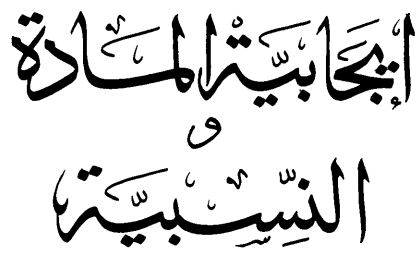 إيجابية المادة
و
النسبية